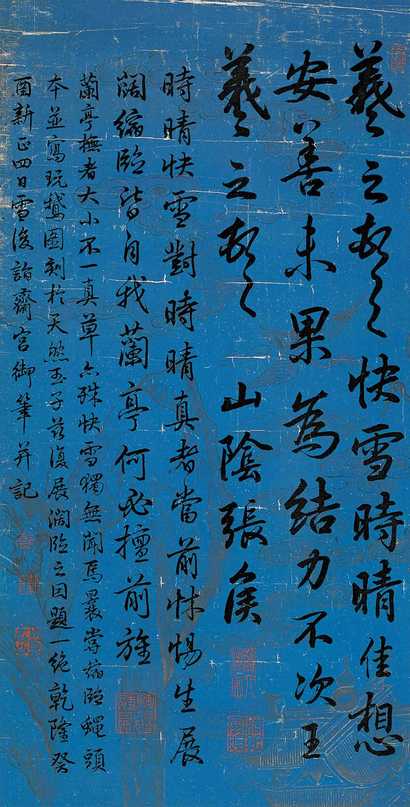 羲之頓首快雪時晴佳想
安善未果為結力不次王
羲之頓首 山陰張侯
時晴快雪對時晴真者當前怵惕生展
闊縮臨皆自我蘭亭何必擅前旌
蘭亭撫者大小不一真草亦殊快雪獨無聞焉曩嘗縮臨蠅頭
本並寫玩鵝圖刻於天然玉子茲復展闊臨之因題一絕乾隆癸
酉新正四日雪後詣齋宮御筆并記